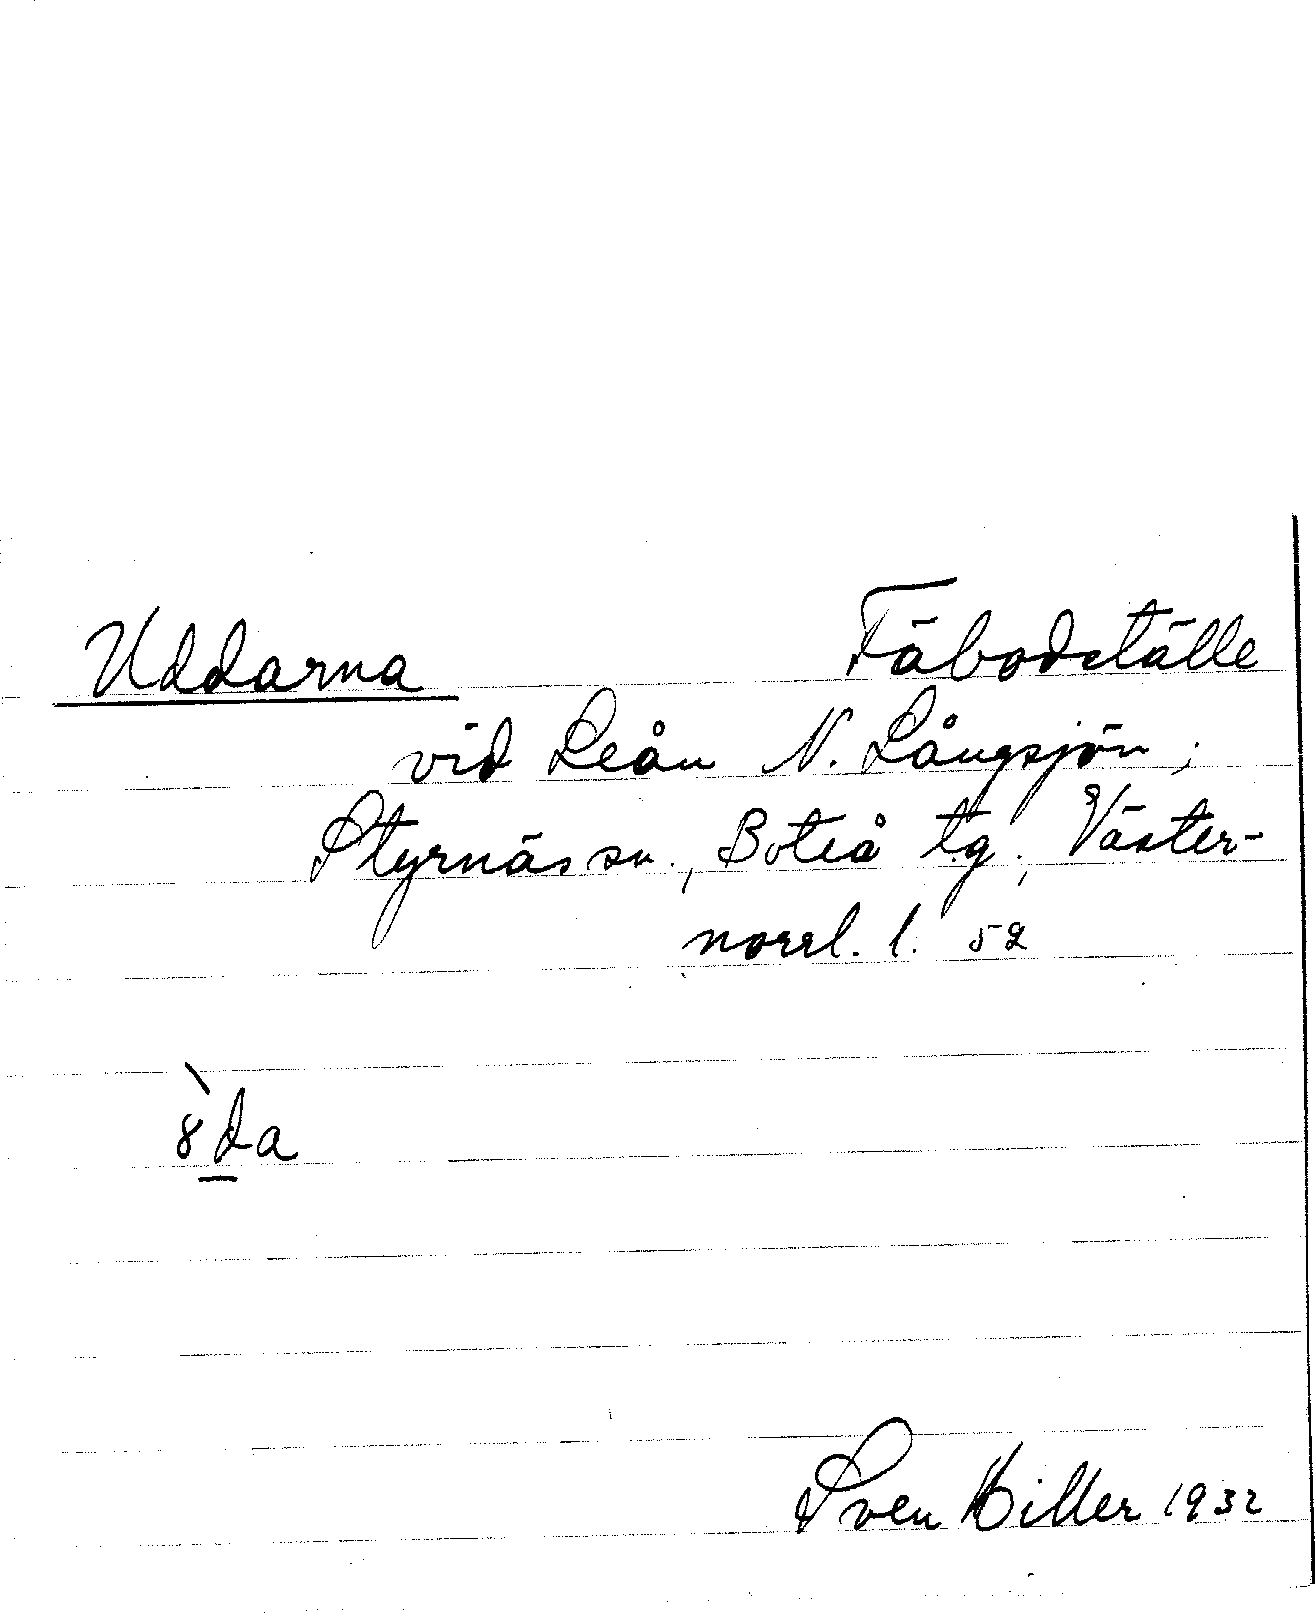 Uddarna Fäbodställe
vid Leån N. Långsjön,
Styrnäs sn., Boteå tg, Väster-
norrl. l. 52
8̀da
Sven Hiller 1932